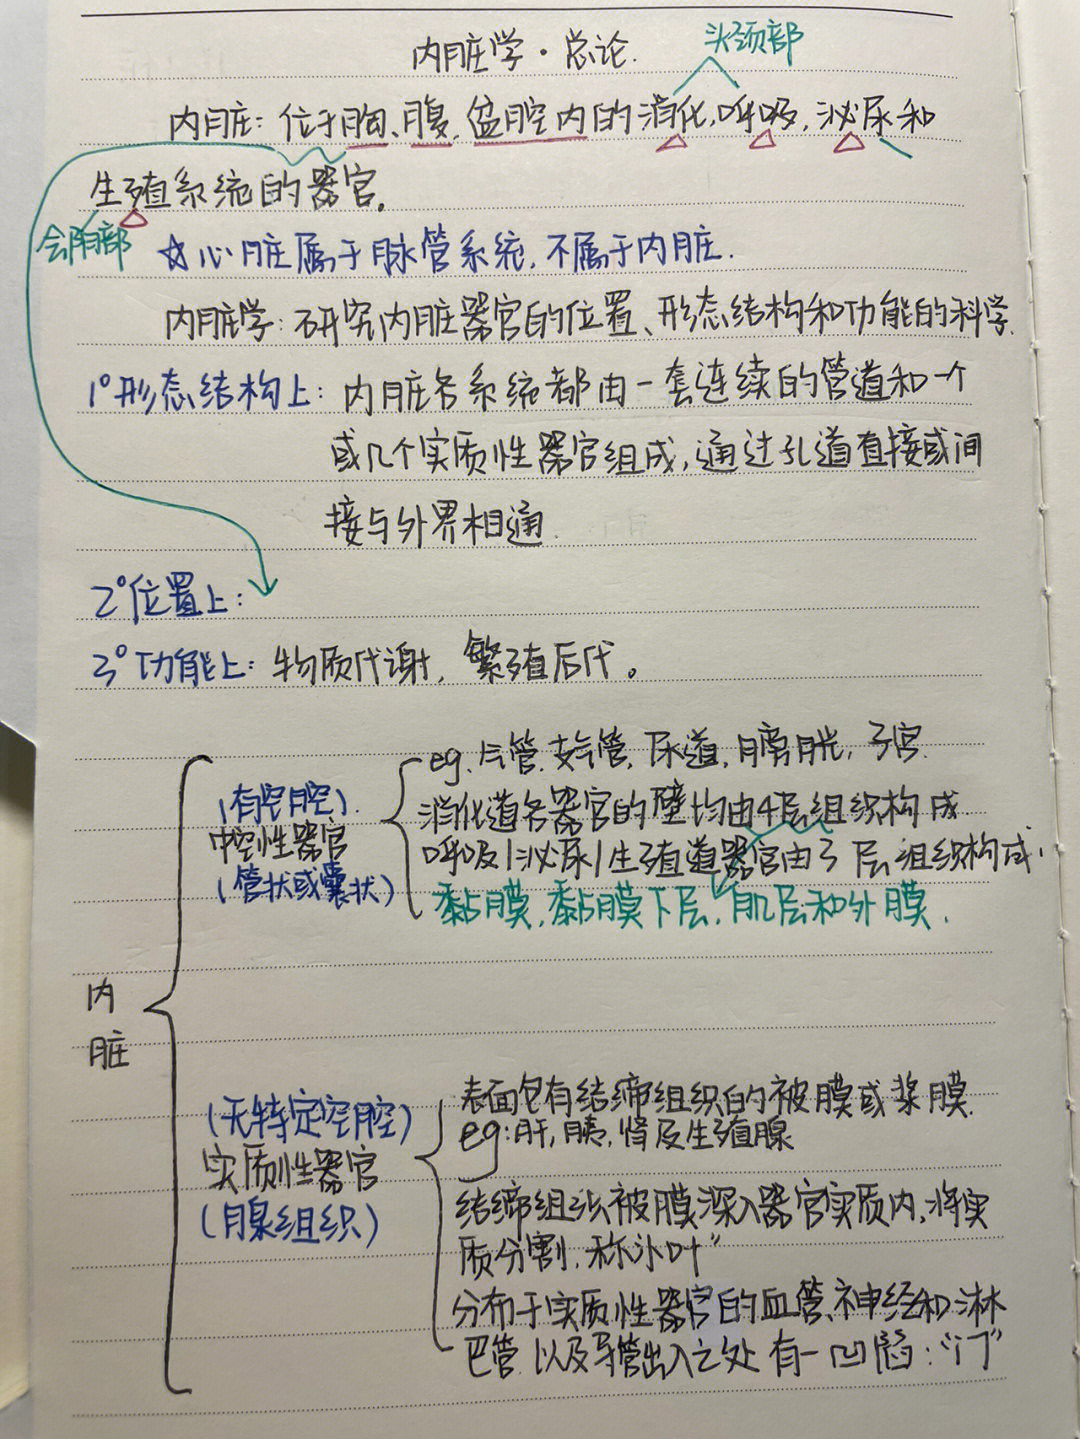 内脏学·总论.
头颈部
内脏:位于胸、腹、盆腔内的消化,呼吸,泌尿和
生殖系统的器官.
会阴部
☆心脏属于脉管系统,不属于内脏.
内脏学:研究内脏器官的位置、形态结构和功能的科学.
1°形态结构上:内脏各系统都由一套连续的管道和一个
或几个实质性器官组成,通过孔道直接或间
接与外界相通.
2°位置上:
3°功能上:物质代谢,繁殖后代。
内脏
(有空腔).
中空性器官
(管状或囊状)
eg.气管.支气管,尿道,膀胱,子宫.
消化道各器官的壁均由4层组织构成.
呼吸|泌尿|生殖道器官由3层组织构成.
黏膜,黏膜下层,肌层和外膜.
(无特定空腔)
实质性器官
(腺组织)
表面包有结缔组织的被膜或浆膜.
eg:肝,胰,肾及生殖腺
结缔组织被膜深入器官实质内,将实
质分割,称“小叶”
分布于实质性器官的血管、神经和淋
巴管.以及导管出入之处有一凹陷:“门”